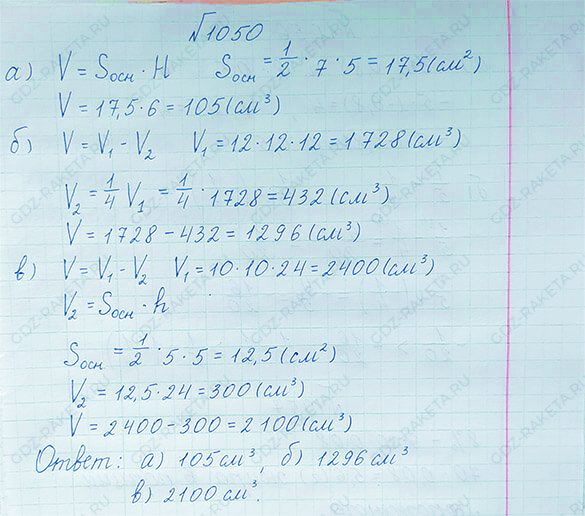 №1050
а) V = Sосн · H Sосн = 1/2 · 7 · 5 = 17,5 (см²)
V = 17,5 · 6 = 105 (см³)
б) V = V₁ - V₂ V₁ = 12 · 12 · 12 = 1728 (см³)
V₂ = 1/4 V₁ = 1/4 · 1728 = 432 (см³)
V = 1728 - 432 = 1296 (см³)
в) V = V₁ - V₂ V₁ = 10 · 10 · 24 = 2400 (см³)
V₂ = Sосн · h
Sосн = 1/2 · 5 · 5 = 12,5 (см²)
V₂ = 12,5 · 24 = 300 (см³)
V = 2400 - 300 = 2100 (см³)
Ответ: а) 105 см³, б) 1296 см³
в) 2100 см³.
GDZ-RAKETA.RU